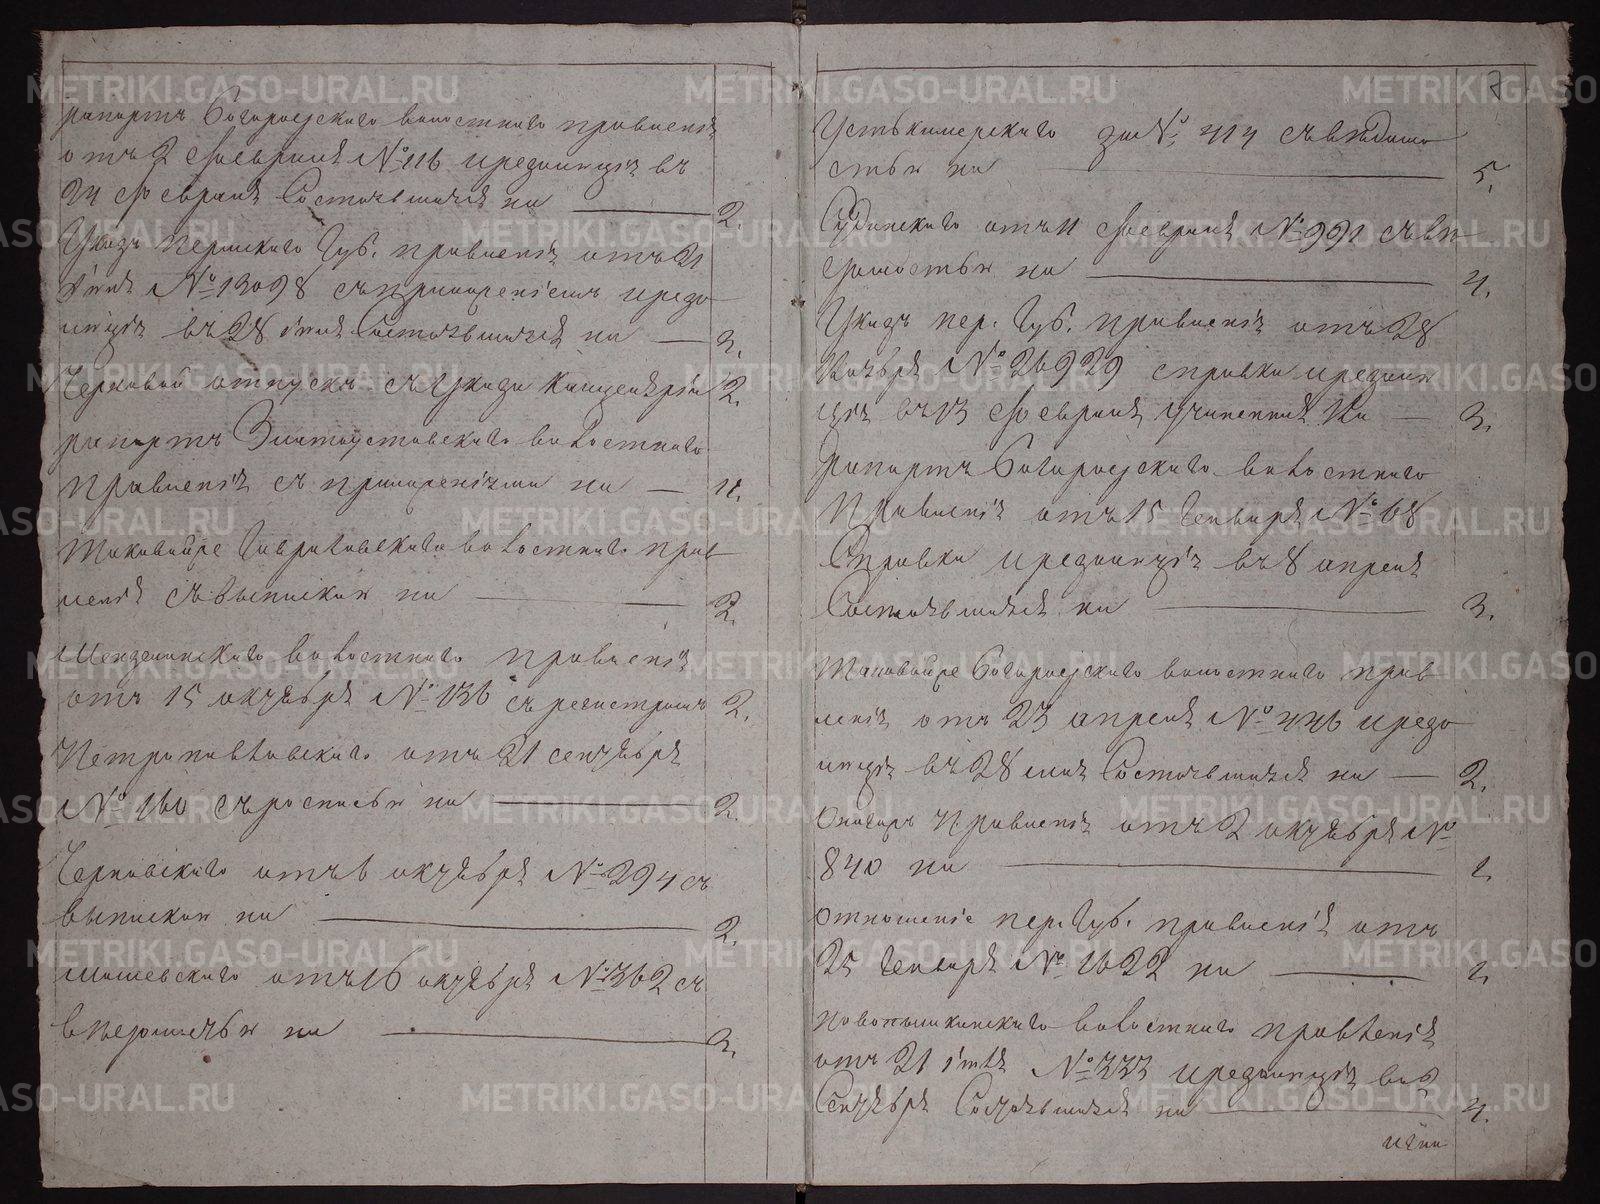 рапортъ Богородскаго волостнаго правленія
отъ 2 февраля № 116 и резолюція въ
24 февраля Состоявшаяся на 2.
Указъ Пермскаго Губ. правленія отъ 21
Іюня № 13098 съ приложеніемъ и резо
люція въ 28 іюня Состоявшаяся на 3.
Черновой отпускъ съ Указа Канцеляріи 2.
рапортъ Златоустовскаго волостнаго
Правленія съ приложеніями на 4.
таковойже Гавриловскаго волостнаго прав
ленія съ выпискою на 2.
волостнаго правленія
отъ 15 октября № 136 съ регистромъ 2.
Петропавловскаго отъ 21 сентября
№ 160 съ росписью на 2.
отъ 6 октября № 294 съ
выпискою на 2.
отъ 16 октября № 362 съ
ведомостью на 3.
7
за № 414 съ ведомо
стью на 5.
Судинскаго отъ 11 февраля № 991 съ ве
домостью на 4.
Указъ пер. Губ. правленія отъ 28
Ноября № 26929 справка и резолю
ція въ 13 февраля учиненная На 3.
Рапортъ Богородскаго волостнаго
Правленія отъ 15 Генваря № 68
Справка и резолюція въ 8 апреля
Состоявшаяся на 3.
таковойже Богородскаго волостнаго прав
ленія отъ 23 апреля № 446 и резо
люція въ 28 мая Состоявшаяся на 2.
Онагожъ Правленія отъ 2 октября №
840 на 1.
отношеніе пер. Губ. правленія отъ
25 Генваря № 1622 на 1.
волостнаго правленія
отъ 21 іюля № 333 и резолюція въ
Сентября Состоявшаяся на 4.
METRIKI.GASO-URAL.RU